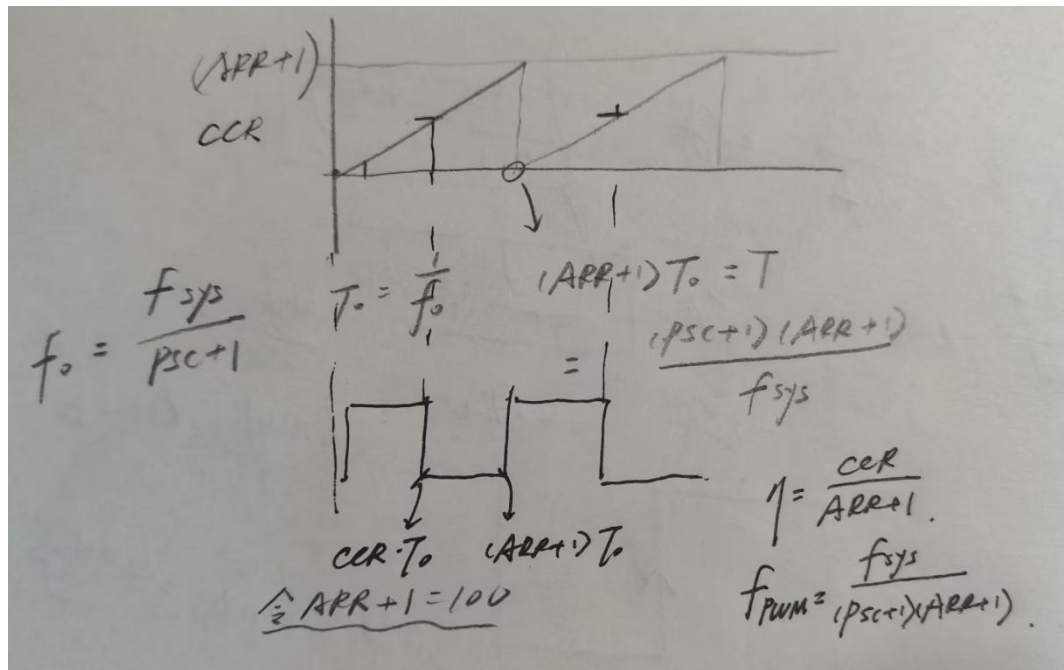 (ARR+1)
CCR
f₀ = fsys / (PSC+1)
T₀ = 1 / f₀
(ARR+1)T₀ = T
= (PSC+1)(ARR+1) / fsys
CCR·T₀
(ARR+1)T₀
令ARR+1=100
η = CCR / (ARR+1).
fPWM = fsys / (PSC+1)(ARR+1).